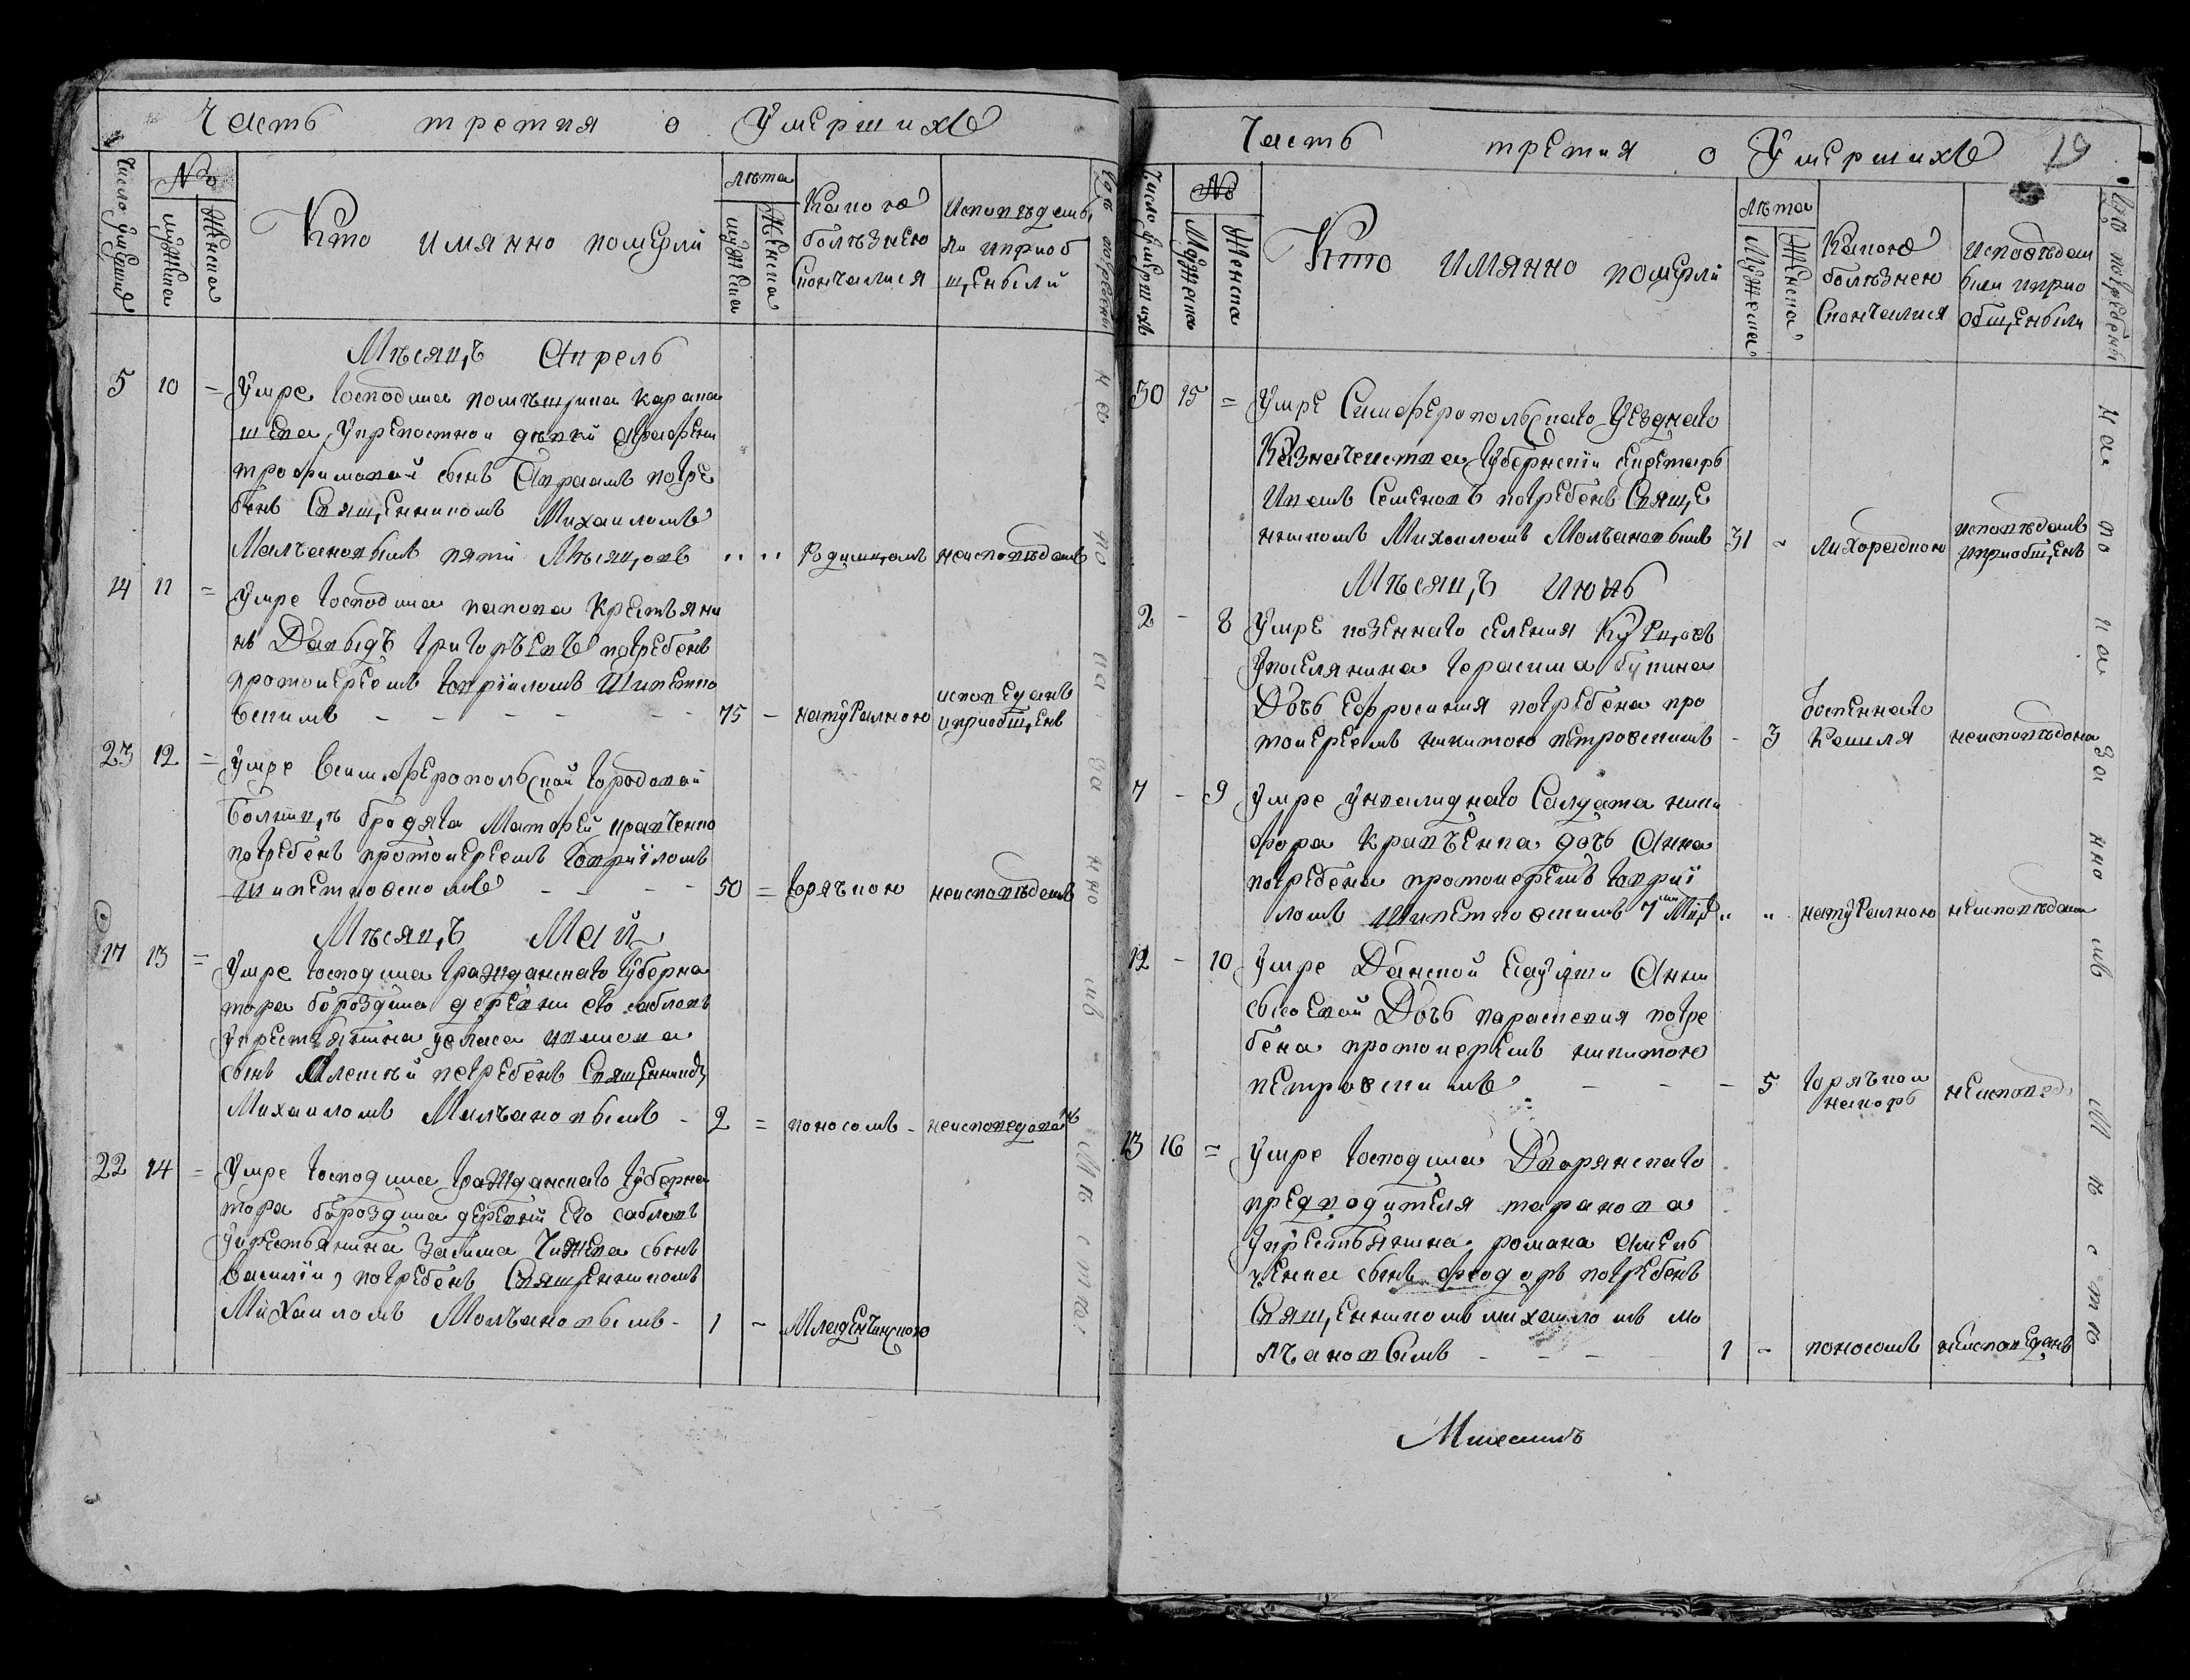 Часть третия о Умершихъ
Число умершихъ
№
мужеска
Женска
Кто имянно померли
лѣта
мужеска
Женска
Какою
болѣзнею
скончалися
Исповѣданы
ли и приоб
щены были
Гдѣ погребены
Мѣсяцъ Апрель
5 10 = Умре господина помѣщика Кара
Шева у крепостной дѣвки Аграфены
трофимовой сынъ Авраамъ погре
бенъ Священникомъ Михаиломъ
Малчановымъ пяти Мѣсяцовъ " " Родимцомъ неисповѣданъ
14 11 = Умре господина Крестьяни
нъ Давыдъ Григорьевъ погребенъ
протоиереемъ Гавріиломъ
75 - натуралною исповеданъ
и приобщенъ
23 12 = Умре Всимферопольской городовой
болницѣ бродяга Матфей Кравченко
погребенъ протоиереемъ Гавріиломъ
50 = горячкою неисповѣданъ
Мѣсяцъ Май
17 13 = Умре господина Гражданскаго Губерна
тора бороздина деревни его саблахъ
у крестьянина
сынъ Алексѣй погребенъ Священникомъ
Михаиломъ Малчановымъ - 2 = поносомъ - неисповеданъ
22 14 = Умре господина Гражданскаго Губерна
тора бороздина деревни его саблахъ
у крестьянина сынъ
Василій, погребенъ Священникомъ
Михаиломъ Молчановымъ - 1 - Младенчискою
На по ка за нно мъ М ѣ с т ѣ
Часть третия о Умершихъ 19
Число умершихъ
№
Мужеска
Женска
Кто имянно померли
лѣта
Мужеска
Женска
Какою
болѣзнею
скончалися
Исповѣдан
были и прио
общены были
Гдѣ погребены
30 15 = Умре Симферопольскаго Уезднаго
Казначейства Губернскій секретарь
Иванъ Семеновъ погребенъ Свяще
нникомъ Михаиломъ Молчановымъ 31 - лихорадкою исповѣданъ
и приобщенъ
Мѣсяцъ Июнь
2 - 8 Умре казеннаго селения Курцовъ
у поселянина Герасима букина
Дочь Ефросиния погребена про
тоиереемъ никитою петровскимъ - 3 Кашля неисповѣдана
7 - 9 Умре у инвалиднаго Салдата ники
фора Кравченка дочь Анна
погребена протоиереемъ Гаврии
ломъ 7 " " натуралною неисповѣдана
12 - 10 Умре Данской Анны
Дочь параскевия погре
бена протоиереемъ никитою
петровскимъ - - - 5 горячкои неисповед
13 16 = Умре господина Дворянскаго
предводителя таранова
у крестьянина романа Амель
ченка сынъ феодоръ погребенъ
Священникомъ михаиломъ мо
лчановымъ - - - - 1 - поносомъ неисповеданъ
На по ка за нно мъ М ѣ с т ѣ